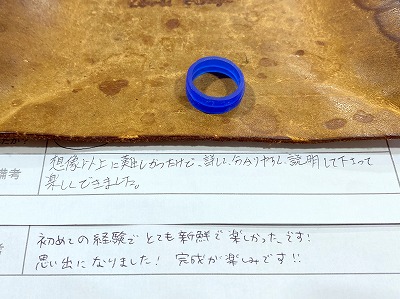 備考
想像以上に難しかったけど、詳しく分かりやすく説明して下さって
楽しくできました。
考
初めての経験でとても新鮮で楽しかったです！
思い出になりました！ 完成が楽しみです!!